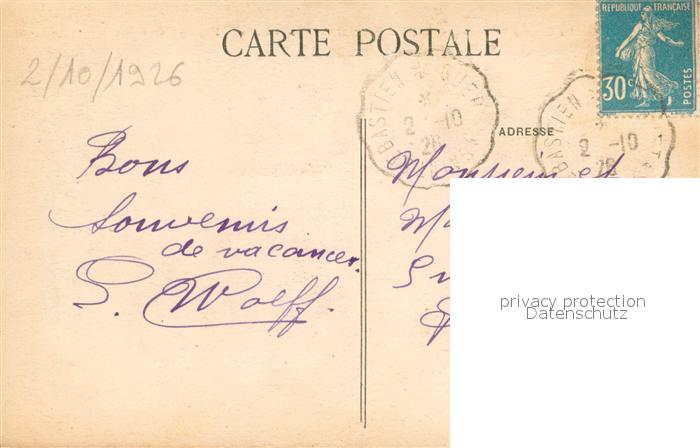 CARTE POSTALE
2/10/1926
RÉPUBLIQUE FRANÇAISE
30c
POSTES
BASTIEN * GUER
2 -10
26
BASTIEN
2 -10
26
ADRESSE
Bons
Souvenirs
de vacances.
S. Wolff.
Monsieur et
privacy protection
Datenschutz